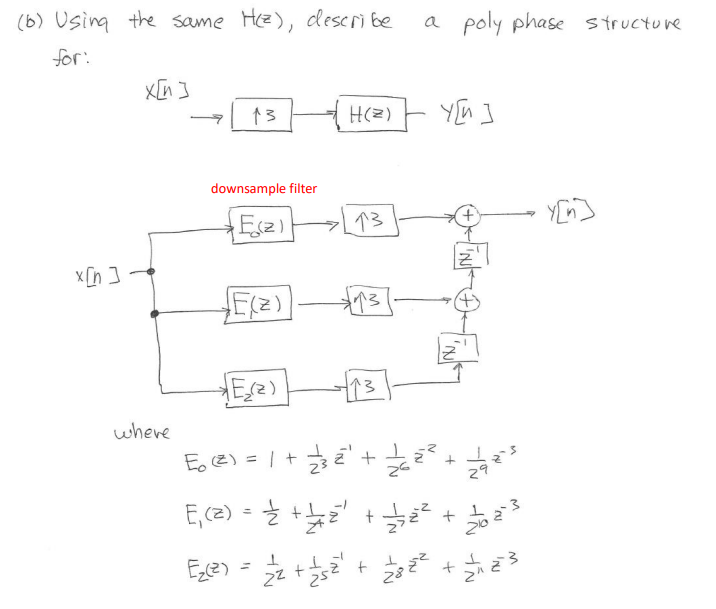 (b) Using the same H(z), describe a polyphase structure
for:
x[n]
↑3
H(z)
y[n]
downsample filter
E₀(z)
↑3
+
y[n]
z⁻¹
x[n]
E₁(z)
↑3
+
z⁻¹
E₂(z)
↑3
where
E₀(z) = 1 + 1/2³ z⁻¹ + 1/2⁶ z⁻² + 1/2⁹ z⁻³
E₁(z) = 1/2 + 1/2⁴ z⁻¹ + 1/2⁷ z⁻² + 1/2¹⁰ z⁻³
E₂(z) = 1/2² + 1/2⁵ z⁻¹ + 1/2⁸ z⁻² + 1/2¹¹ z⁻³